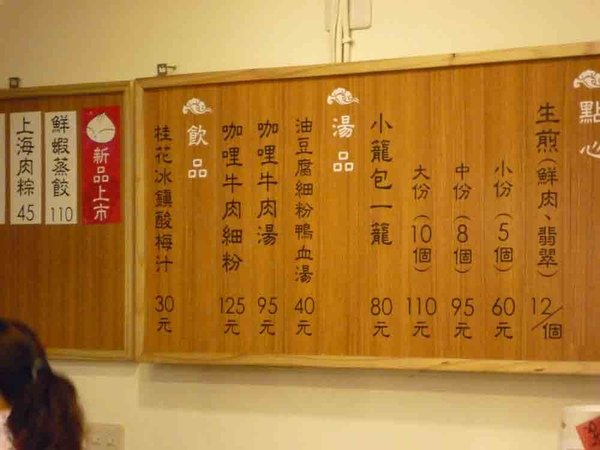 點心
生煎(鮮肉、翡翠) 12/個
小份(5個) 60元
中份(8個) 95元
大份(10個) 110元
小籠包一籠 80元
湯品
油豆腐細粉鴨血湯 40元
咖哩牛肉湯 95元
咖哩牛肉細粉 125元
飲品
桂花冰鎮酸梅汁 30元
新品上市
鮮蝦蒸餃 110
上海肉粽 45